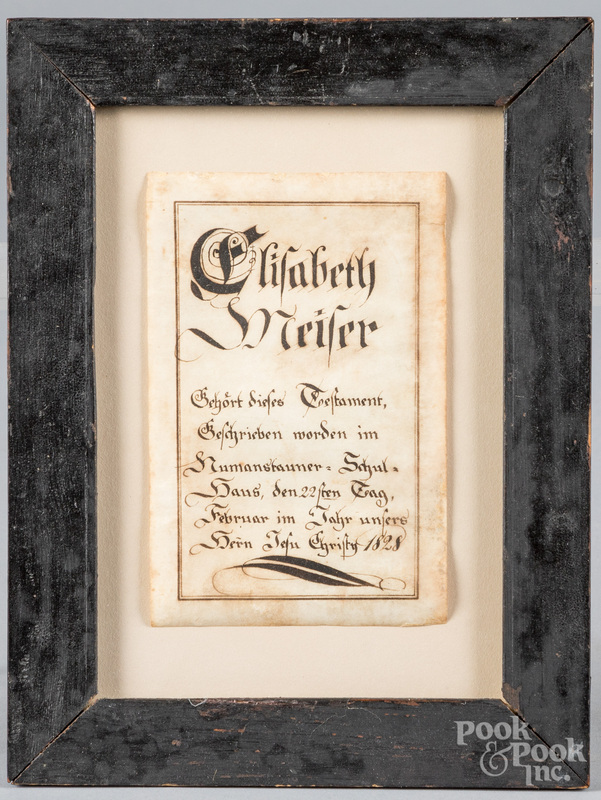 Elisabeth
Meiser
Gehört dieses Testament,
Geschrieben worden im
Numanstauner- Schul-
Haus, den 22sten Tag,
Februar im Jahr unsers
Herrn Jesu Christy 1828
POOK
& POOK
INC.